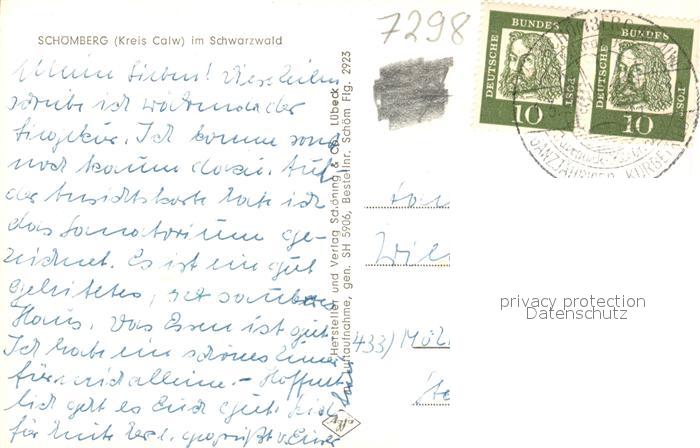 7298
SCHÖMBERG (Kreis Calw) im Schwarzwald
DEUTSCHE BUNDESPOST
10
DEUTSCHE BUNDESPOST
10
GANZJÄHRIGER KURBE
Meine Lieben! Diese Zeilen
schreibe ich während der
Liegekur. Ich komme sonst
noch kaum dazu. Auf
der Ansichtskarte habe ich
das Sanatorium ge-
zeichnet. Es ist ein gut
geleitetes, sauberes
Haus. Das Essen ist gut.
Ich habe ein schönes Zimmer
für mich allein. - Hoffent-
lich geht es Euch gut. Seid
für heute herzl. gegrüßt v. Eurer
Hersteller und Verlag Schöning & Co., Lübeck
Luftaufnahme, gen. SH 5906, Bestellnr. Schöm Flg. 2923
433) Mül
privacy protection
Datenschutz